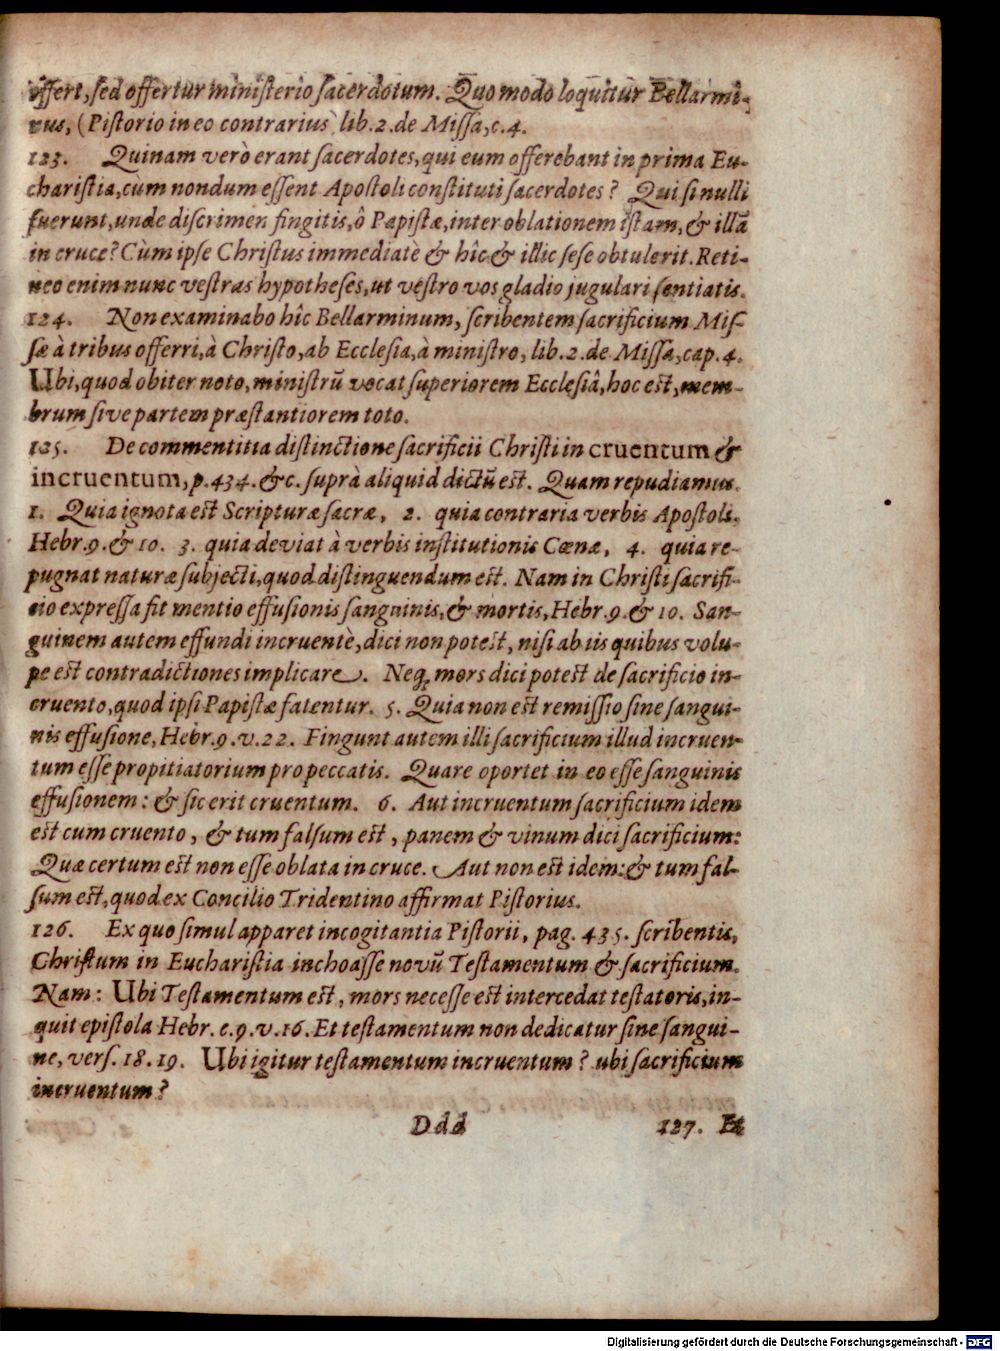 offert, sed offertur ministerio sacerdotum. Quomodo loquitur Bellarmi-
nus, (Pistorio in eo contrarius) lib. 2. de Missa, c. 4.
123. Quinam verò erant sacerdotes, qui eum offerebant in prima Eu-
charistia, cùm nondum essent Apostoli constituti sacerdotes? Qui si nulli
fuerunt, unde discrimen fingitis, ô Papistæ, inter oblationem istam, & illã
in cruce? Cùm ipse Christus immediatè & hîc & illic sese obtulerit. Reti-
neo enim nunc vestras hypotheses, ut vestro vos gladio jugulari sentiatis.
124. Non examinabo hîc Bellarminum, scribentem sacrificium Mis-
sæ à tribus offerri, à Christo, ab Ecclesia, à ministro, lib. 2. de Missa, cap. 4.
Ubi, quod obiter noto, ministrũ vocat superiorem Ecclesiâ, hoc est, mem-
brum sive partem præstantiorem toto.
125. De commentitia distinctione sacrificii Christi in cruentum &
incruentum, p. 434. &c. suprà aliquid dictũ est. Quam repudiamus.
1. Quia ignota est Scripturæ sacræ, 2. quia contraria verbis Apostoli.
Hebr. 9. & 10. 3. quia deviat à verbis institutionis Cœnæ, 4. quia re-
pugnat naturæ subjecti, quod distinguendum est. Nam in Christi sacrifi-
cio expressa fit mentio effusionis sanguinis, & mortis, Hebr. 9. & 10. San-
guinem autem effundi incruentè, dici non potest, nisi ab iis quibus volu-
pe est contradictiones implicare. Neq; mors dici potest de sacrificio in-
cruento, quod ipsi Papistæ fatentur. 5. Quia non est remissio sine sangui-
nis effusione, Hebr. 9. v. 22. Fingunt autem illi sacrificium illud incruen-
tum esse propitiatorium pro peccatis. Quare oportet in eo esse sanguinis
effusionem: & sic erit cruentum. 6. Aut incruentum sacrificium idem
est cum cruento, & tum falsum est, panem & vinum dici sacrificium:
Quæ certum est non esse oblata in cruce. Aut non est idem: & tum fal-
sum est, quod ex Concilio Tridentino affirmat Pistorius.
126. Ex quo simul apparet incogitantia Pistorii, pag. 435. scribentis,
Christum in Eucharistia inchoasse novũ Testamentum & sacrificium.
Nam: Ubi Testamentum est, mors necesse est intercedat testatoris, in-
quit epistola Hebr. c. 9. v. 16. Et testamentum non dedicatur sine sangui-
ne, vers. 18. 19. Ubi igitur testamentum incruentum? ubi sacrificium
incruentum?
Ddd 127. Et
Digitalisierung gefördert durch die Deutsche Forschungsgemeinschaft - DFG